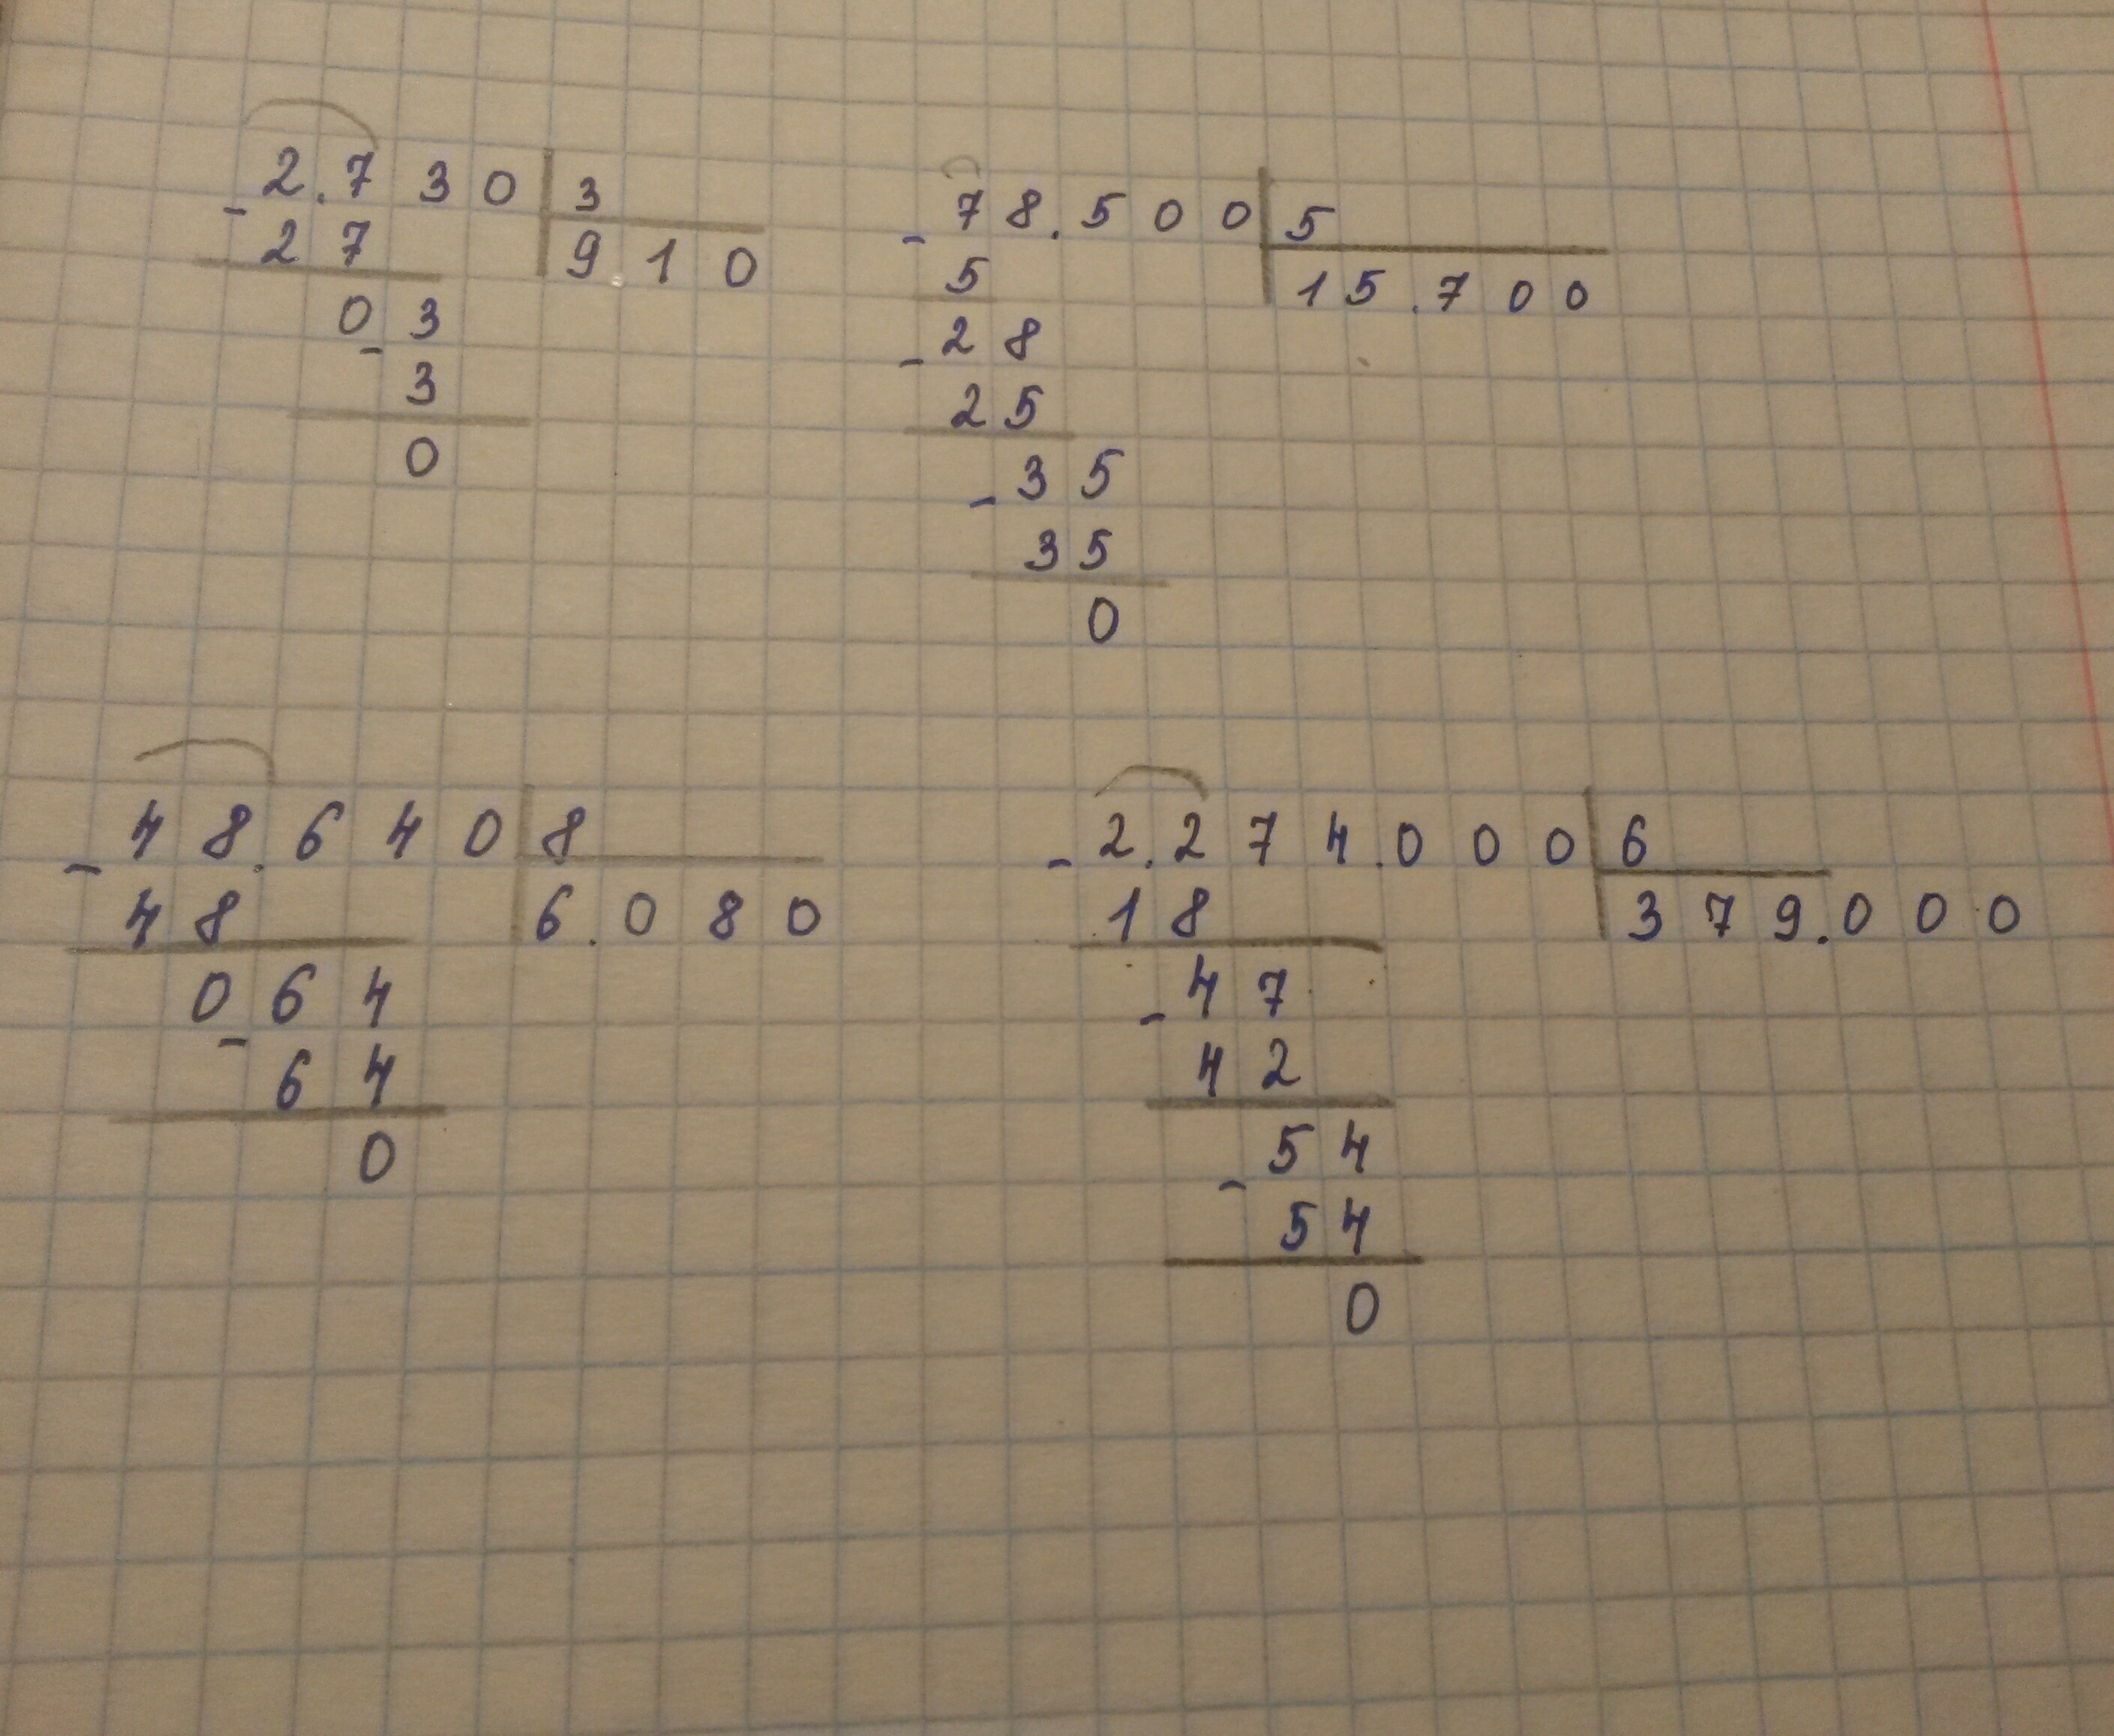 2.730 | 3
- 27 | 910
03
- 3
0
78.500 | 5
- 5 | 15.700
28
- 25
35
- 35
0
48.640 | 8
- 48 | 6.080
064
- 64
0
2.274.000 | 6
- 18 | 379.000
47
- 42
54
- 54
0